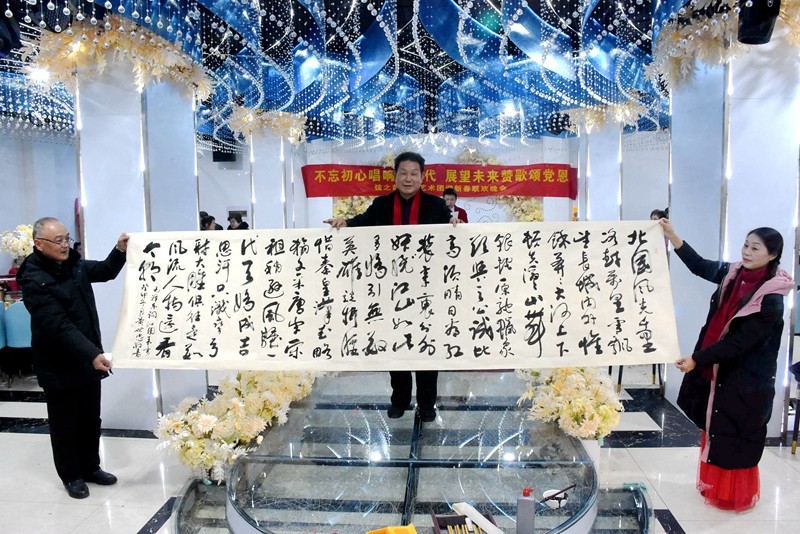 不忘初心唱响代 展望未来赞歌颂党恩
艺术团迎新春联欢晚会
北國風光千里
冰封萬里雪飘
望長城内外惟
馀莽莽大河上下
顿失滔滔山舞
银蛇原驰蜡象
欲與天公试比
高须晴日看红
装素裹分外
妖娆江山如此
多娇引無数
英雄竞折腰
惜秦皇漢武略
输文采唐宗宋
祖稍逊風骚一
代天骄成吉
思汗只識弯弓
射雕俱往矣数
風流人物還看
今朝